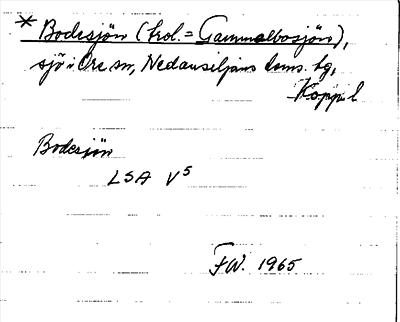 * Bodesjön (trol. = Gammelbosjön),
sjö i Ore sn, Nedansiljans doms. tg,
Kopp. l
Bodesjön
LSA V⁵
FW. 1965